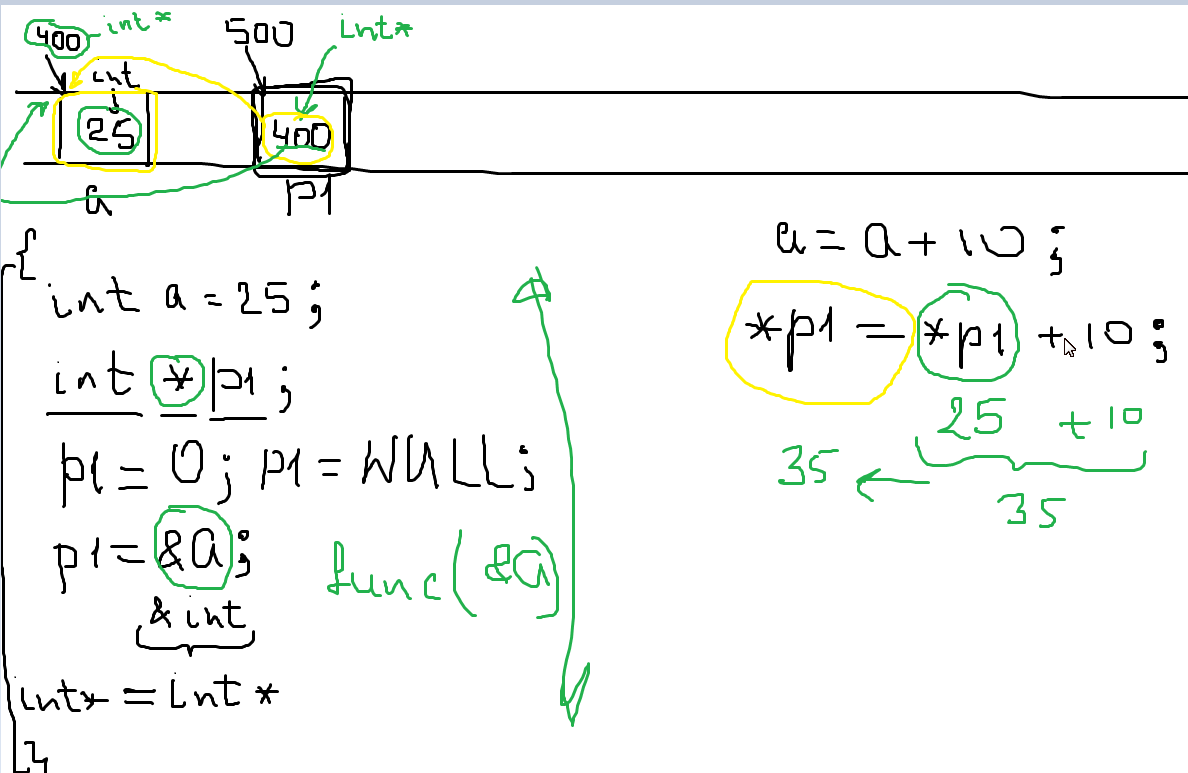 400 int* 500 int*
int
25 400
a p1
{
int a = 25;
int *p1;
p1 = 0; p1 = NULL;
p1 = &a;
& int
int* = int*
}
func(&a)
a = a + 10;
*p1 = *p1 + 10;
25 + 10
35
35